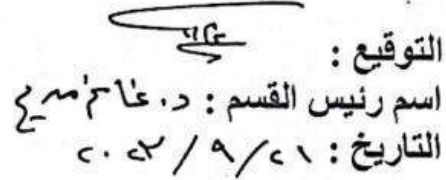 التوقيع :
اسم رئيس القسم : د. غانم مريح
التاريخ : ٢١ / ٩ / ٢٠٢٣